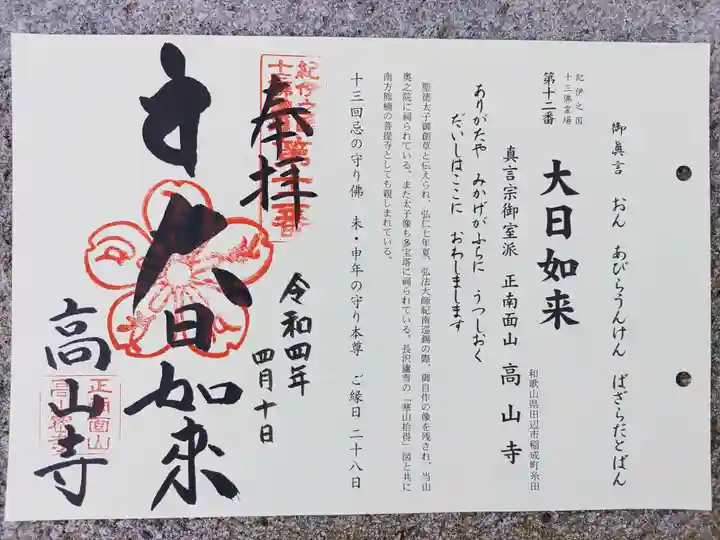 御眞言　おん　あびらうんけん　ばざらだとばん
紀伊之国
十三佛霊場
第十二番
大日如来
和歌山県田辺市稲成町糸田
真言宗御室派　正南面山　高山寺
ありがたや　みかげがふちに　うつしおく
だいしはここに　おわしまします
聖徳太子御創草と伝えられ、弘仁七年夏、弘法大師紀南巡錫の際、御自作の像を残され、当山
奥之院に祠られている。また太子像も多宝塔に祠られている。長沢蘆雪の「寒山拾得」図と共に
南方熊楠の菩提寺としても親しまれている。
十三回忌の守り佛　未・申年の守り本尊　ご縁日　二十八日
奉拝
令和四年
四月十日
大日如来
高山寺
正南面山
高山密寺